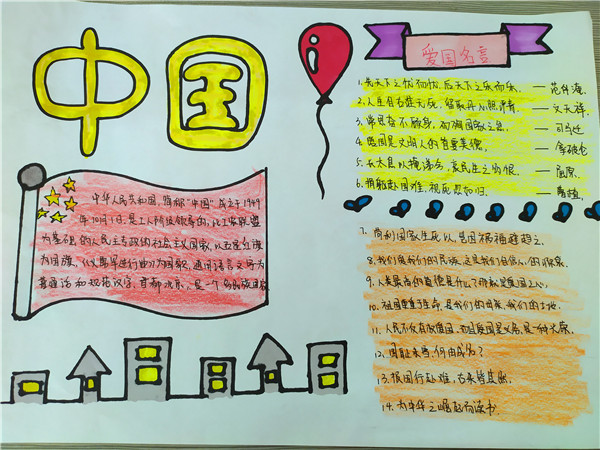 中国
爱国名言
1.先天下之忧而忧,后天下之乐而乐. —范仲淹.
2.人生自古谁无死,留取丹心照汗青. —文天祥.
3.常思奋不顾身,而殉国家之急. —司马迁.
4.爱国是文明人的首要美德. —拿破仑
5.长太息以掩涕兮,哀民生之多艰. —屈原.
6.捐躯赴国难,视死忽如归. —曹植.
7.苟利国家生死以,岂因祸福避趋之.
8.我们爱我们的民族,这是我们自信心的源泉.
9.人类最高的道德是什么?那就是爱国之心.
10.祖国重于生命,是我们的母亲,我们的土地.
11.人民不仅有权爱国,而且爱国是义务,是一种光荣.
12.国耻未雪,何由成名?
13.报国行赴难,古来皆共然.
14.为中华之崛起而读书
中华人民共和国,简称"中国",成立于1949
年10月1日,是工人阶级领导的,以工农联盟
为基础的人民民主专政的社会主义国家,以五星红旗
为国旗,《义勇军进行曲》为国歌,通用语言文字为
普通话和规范汉字,首都北京,是一个多民族国家